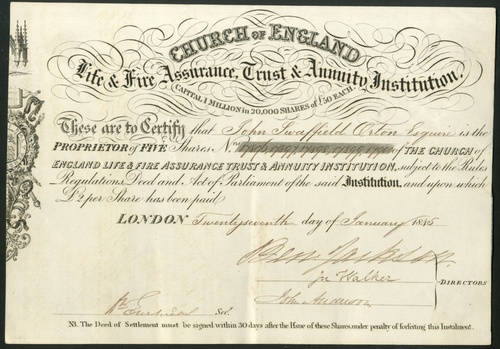 CHURCH OF ENGLAND
Life & Fire Assurance, Trust & Annuity Institution.
CAPITAL 1 MILLION in 20,000 SHARES of £50 EACH
These are to Certify that John Swaffield Orton Esquire is the
PROPRIETOR of FIVE Shares Nos of THE CHURCH OF
ENGLAND LIFE & FIRE ASSURANCE TRUST & ANNUITY INSTITUTION, subject to the Rules
Regulations, Deed and Act of Parliament of the said Institution, and upon which
£2 per Share has been paid
LONDON Twentyseventh day of January 1845
Jn Walker
DIRECTORS
John Anderson
Sec.
NB. The Deed of Settlement must be signed within 30 days after the Issue of these Shares, under penalty of forfeiting this Instalment.